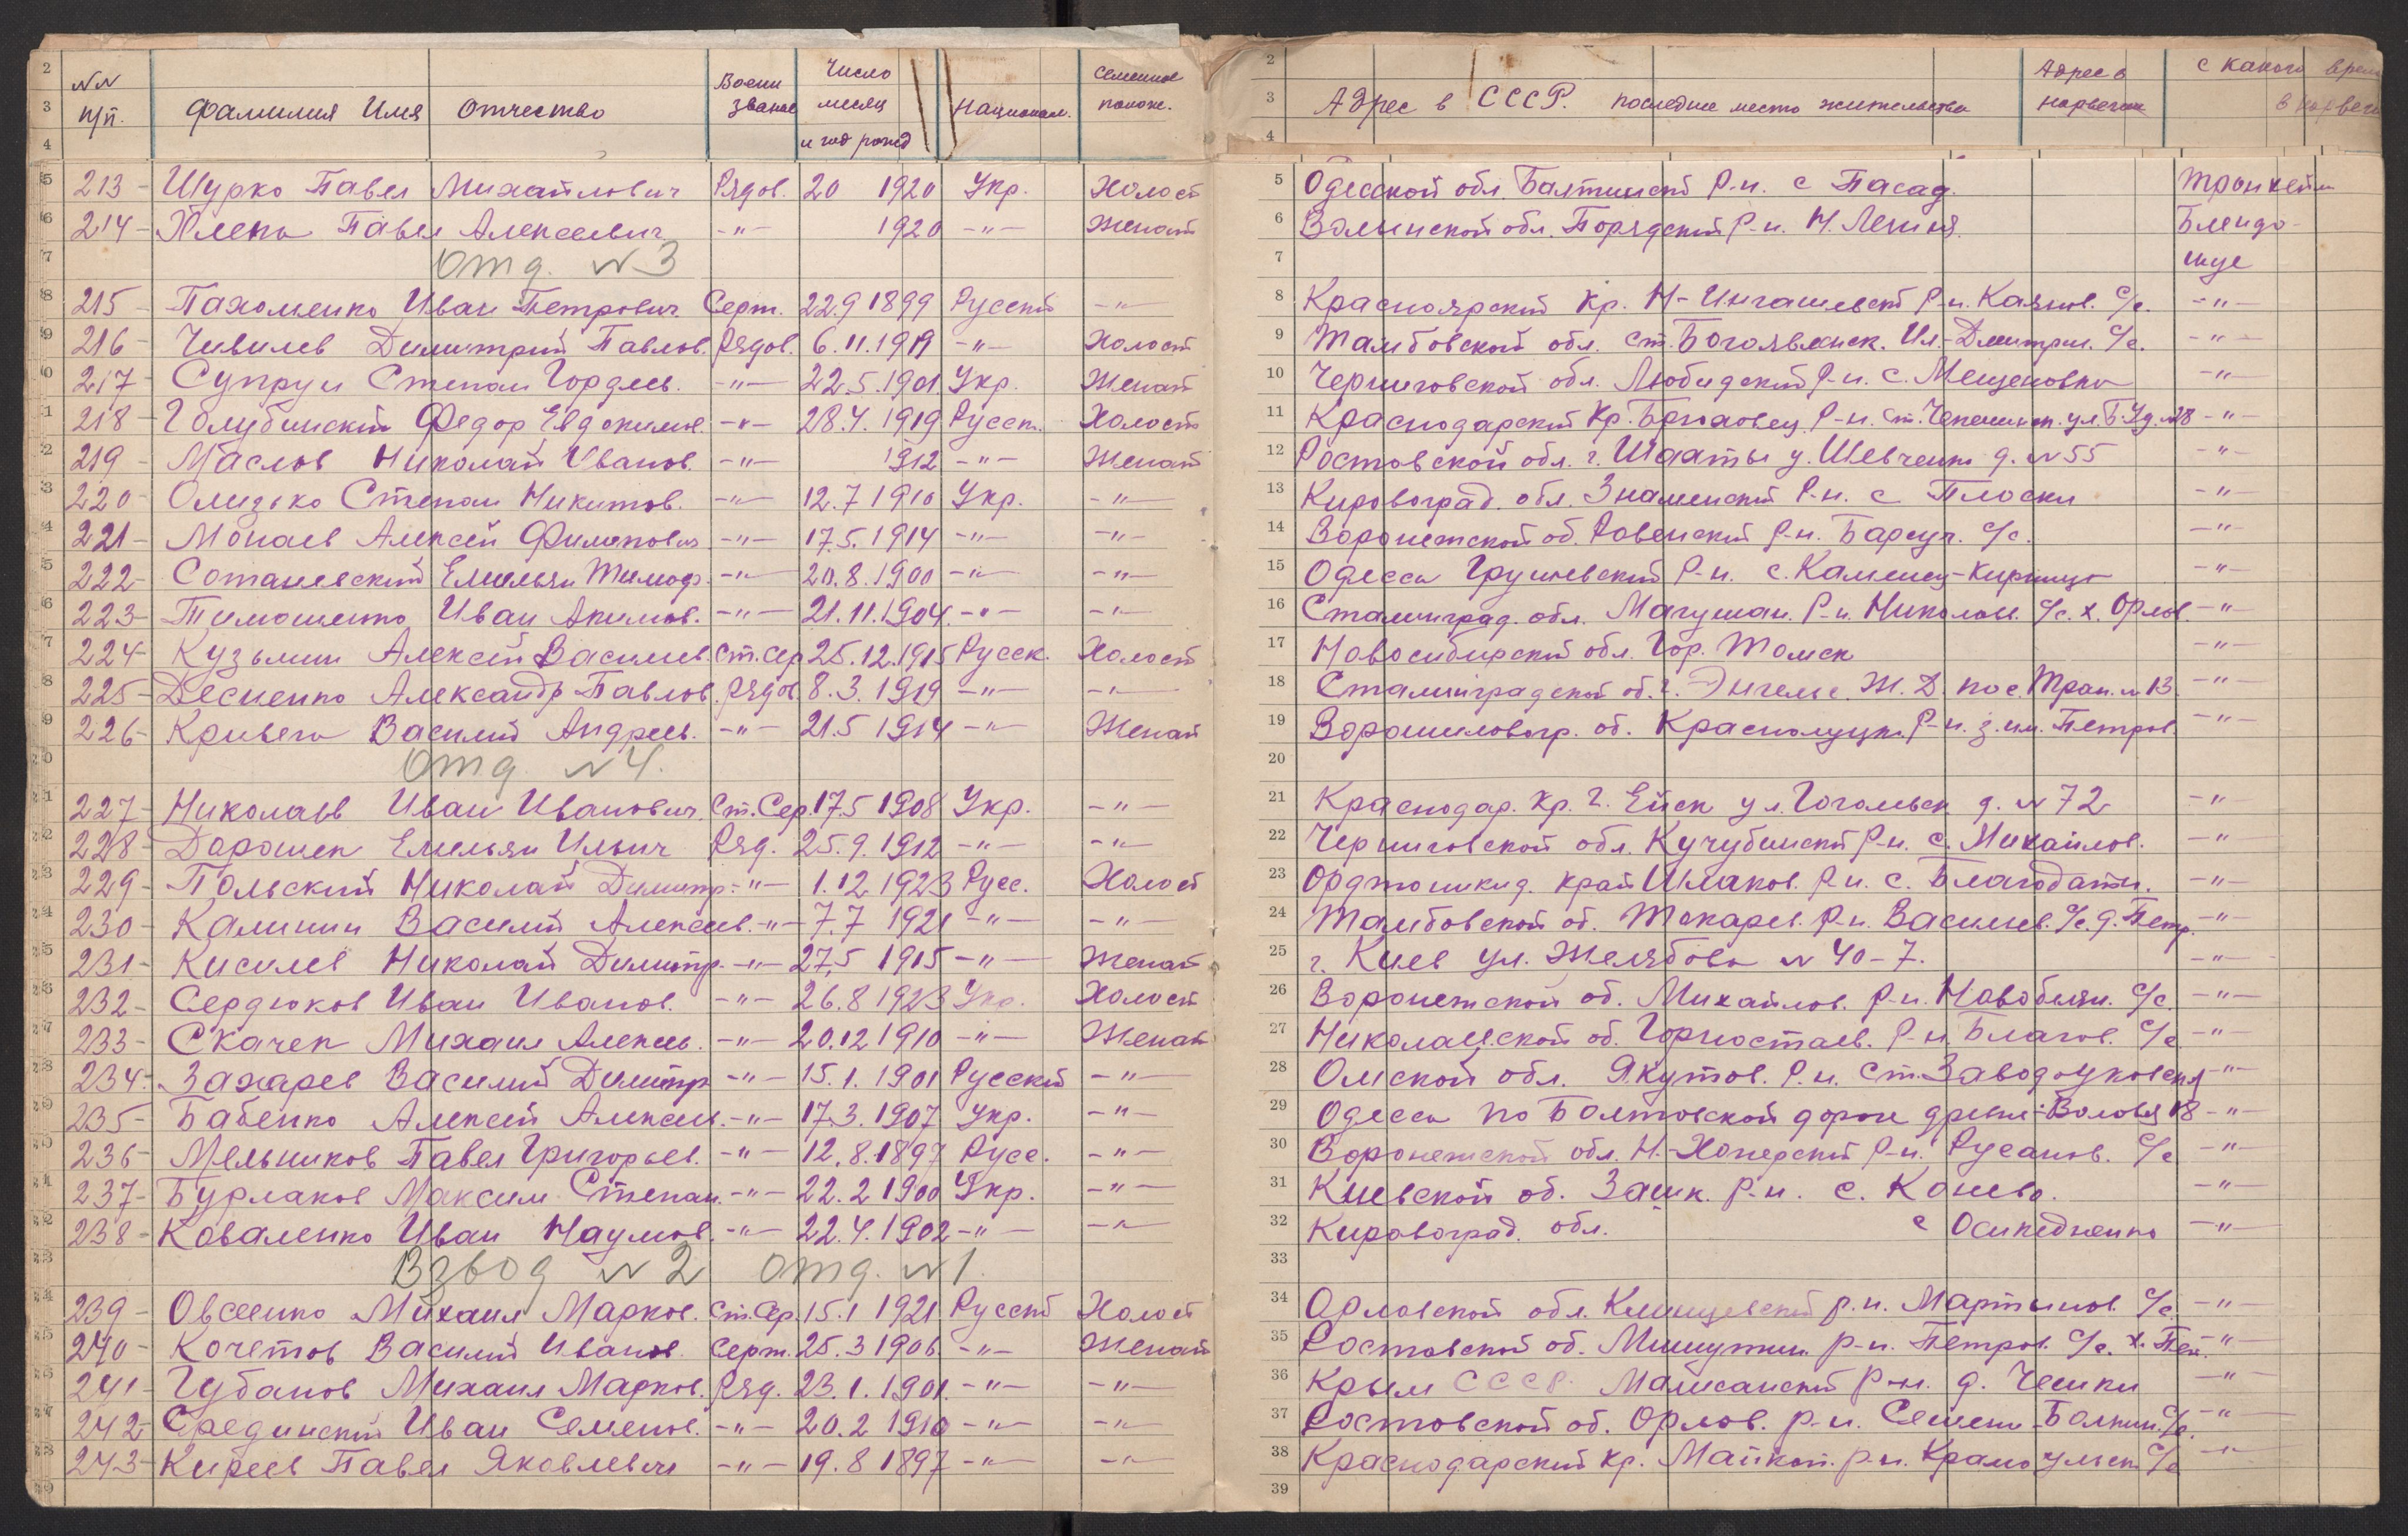 NN п/п. Фамилия Имя Отчество Воени звание Число месяц и год рожд Национал. Семейное полож. Адрес в СССР. последнее место жительства Адрес в норвегии с какого врем в норвеги
213 - Шурко Павел Михайлович Рядов. 20 1920 Укр. Холост Одесской обл. Балтинский Р-н. с Пасад. Тронхейм
214 - Павел Алексеевич -"- 1920 -"- Женат Волынской обл. Р-н. Н. Блендо-
Отд. N 3 шуе
215 - Пахоменко Иван Петрович Серж. 22.9 1899 Русский -"- Красноярский Кр. Н-Ингашевский Р-н. Каянов. С/с. -"-
216 - Чивилев Димитрий Павлов. Рядов. 6.11.1919 -"- Холост Тамбовской обл. ст. Богоявленск. Ил-Дмитри. С/с. -"-
217 - Супрун Степан Гордеев. -"- 22.5.1901 Укр. Женат Черниговской обл. Любидский Р-н. с. Мещеновка -"-
218 - Голубинский Федор Евдокимов. -"- 28.4.1919 Русск. Холост Краснодарский Кр. Брюховец. Р-н. ст. ул. N28 -"-
219 - Маслов Николай Иванов. -"- 1912 -"- Женат Ростовской обл. г. Шахты у. Шевченко д. N 55 -"-
220 - Олизько Степан Никитов. -"- 12.7 1910 Укр. -"- Кировоград. обл. Знаменский Р-н. с Плоски -"-
221 - Монаев Алексей Филипович -"- 17.5.1914 -"- -"- Воронежской об. Ровенский Р-н. Барсуч. С/с. -"-
222 - Сотаневский Емельян Тимоф. -"- 20.8.1900 -"- -"- Одесса Грушевский Р-н. с. Каменец- -"-
223 - Тимошенко Иван Акимов. -"- 21.11.1904. -"- -"- Сталинград. обл. Мачушан. Р-н. Николаев. С/с. х. Орлов. -"-
224 - Кузьмин Алексей Васильев. Ст.Сер 25.12.1915 Русск. Холост Новосибирский обл. Гор. Томск -"-
225 - Десненко Александр Павлов. Рядов 8.3.1919 -"- -"- Сталинградской об. г. Энгельс Ж.Д. пос. Тран. N 13 -"-
226 - Кривега Василий Андреев. -"- 21.5 1914 -"- Женат Ворошиловогр. об. Краснолуцк. Р-н. з. им. Петров. -"-
Отд N 4.
227 - Николаев Иван Иванович. Ст.Сер. 17.5 1908 Укр. -"- Краснодар. Кр. г. Ейск ул. Гогольск д. N 72 -"
228 - Дорошек Емельян Ильич Ряд. 25.9.1912 -"- -"- Черниговской обл. Кучубинский Р-н. с. Михайлов. -"
229 - Польский Николай Димитр. -"- 1.12.1923 Русс. Холост Орджоникид. край Шпаков. Р.н. с. Благодатн. -"-
230 - Калинин Василий Алексеев. -"- 7.7 1921 -"- -"- Тамбовской об. Токарев. Р-н. Васильев. С/с. д. Петр. -"-
231 - Киселев Николай Димитр. -"- 27.5 1915 -"- Женат г. Киев ул. Желябова N 40-7. -"-
232 - Сердюков Иван Иванов. -"- 26.8 1923 Укр. Холост Воронежской об. Михайлов. Р-н. Новобелян. С/с. -"-
233 - Скачек Михаил Алексеев. -"- 20.12 1910 -"- Женат Николаевской об. Горностаев. Р-н. Благов. С/с -"-
234 - Захарев Василий Димитр -"- 15.1.1901 Русский -"- Омской обл. Якутов. Р.н. ст. Заводоуковская -"-
235 - Бабенко Алексей Алексеев. -"- 17.3.1907 Укр. -"- Одесса по Болтовской дороге Воловья 18 -"-
236 - Мельников Павел Григорьев. -"- 12.8.1897 Русс. -"- Воронежской обл. Н-Хоперский Р-н. Русанов. С/с -"-
237 - Бурлаков Максим Степан. -"- 22.2 1900 Укр. -"- Киевской об. Зашк. Р-н. с. Конева. -"-
238 - Коваленко Иван Наумов. -"- 22.4.1902 -"- -"- Кировоград. обл. с Осипедненко -"-
Взвод N 2 Отд. N 1.
239 - Овсеенко Михаил Марков. Ст.Сер. 15.1 1921 Русский Холост Орловской обл. Клинцевский р.н. Мартынов. С/с. -"-
240 - Кочетов Василий Иванов. Серж. 25.3 1906. -"- Женат Ростовской об. Мишутин. р-н. Петров. С/с. х. -"-
241 - Губанов Михаил Марков. Ряд. 23.1.1901. -"- -"- Крым СССР. р-н. д. Чешки -"-
242 - Срединский Иван Семенов. -"- 20.2 1910 -"- -"- Ростовской об. Орлов. р-н. Семени-Балкин. С/с. -"-
243 - Киреев Павел Яковлевич -"- 19.8 1897 -"- -"- Краснодарский Кр. Майкоп. р-н. С/с -"-